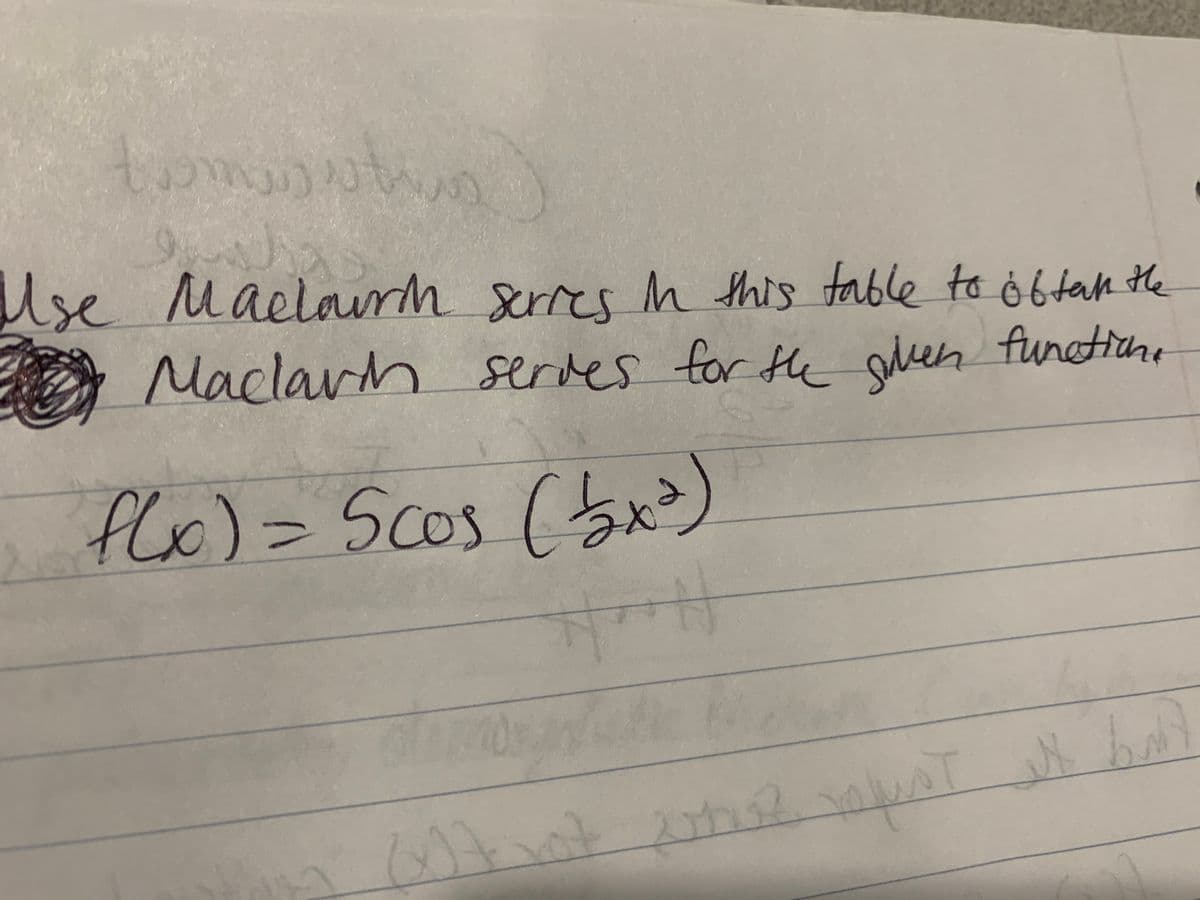 Use Maclaurin series in this table to obtain the
Maclaurin series for the given function.
f(x) = 5cos (½x²)